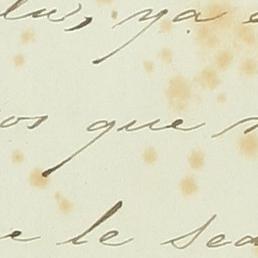 ya
os que
e le sea